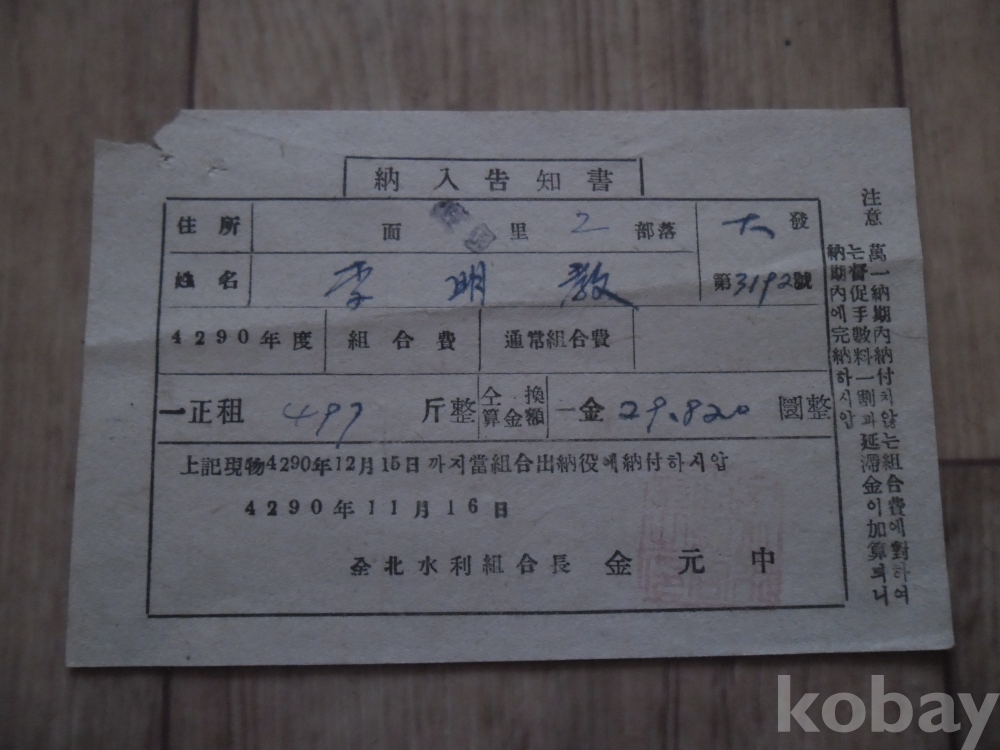 納入告知書
住所 面 里 2 部落 大發
姓名 李明教 第3192號
4290年度 組合費 通常組合費
一正租 497 斤整 仝換算金額 一金 29.820 圜整
上記現物4290年12月15日까지當組合出納役에納付하시압
4290年11月16日
全北水利組合長 金元中
注意
萬一納期內納付치않는組合費에對하여
는督促手數料一割과延滯金이加算되니
納期內에完納하시압
kobay